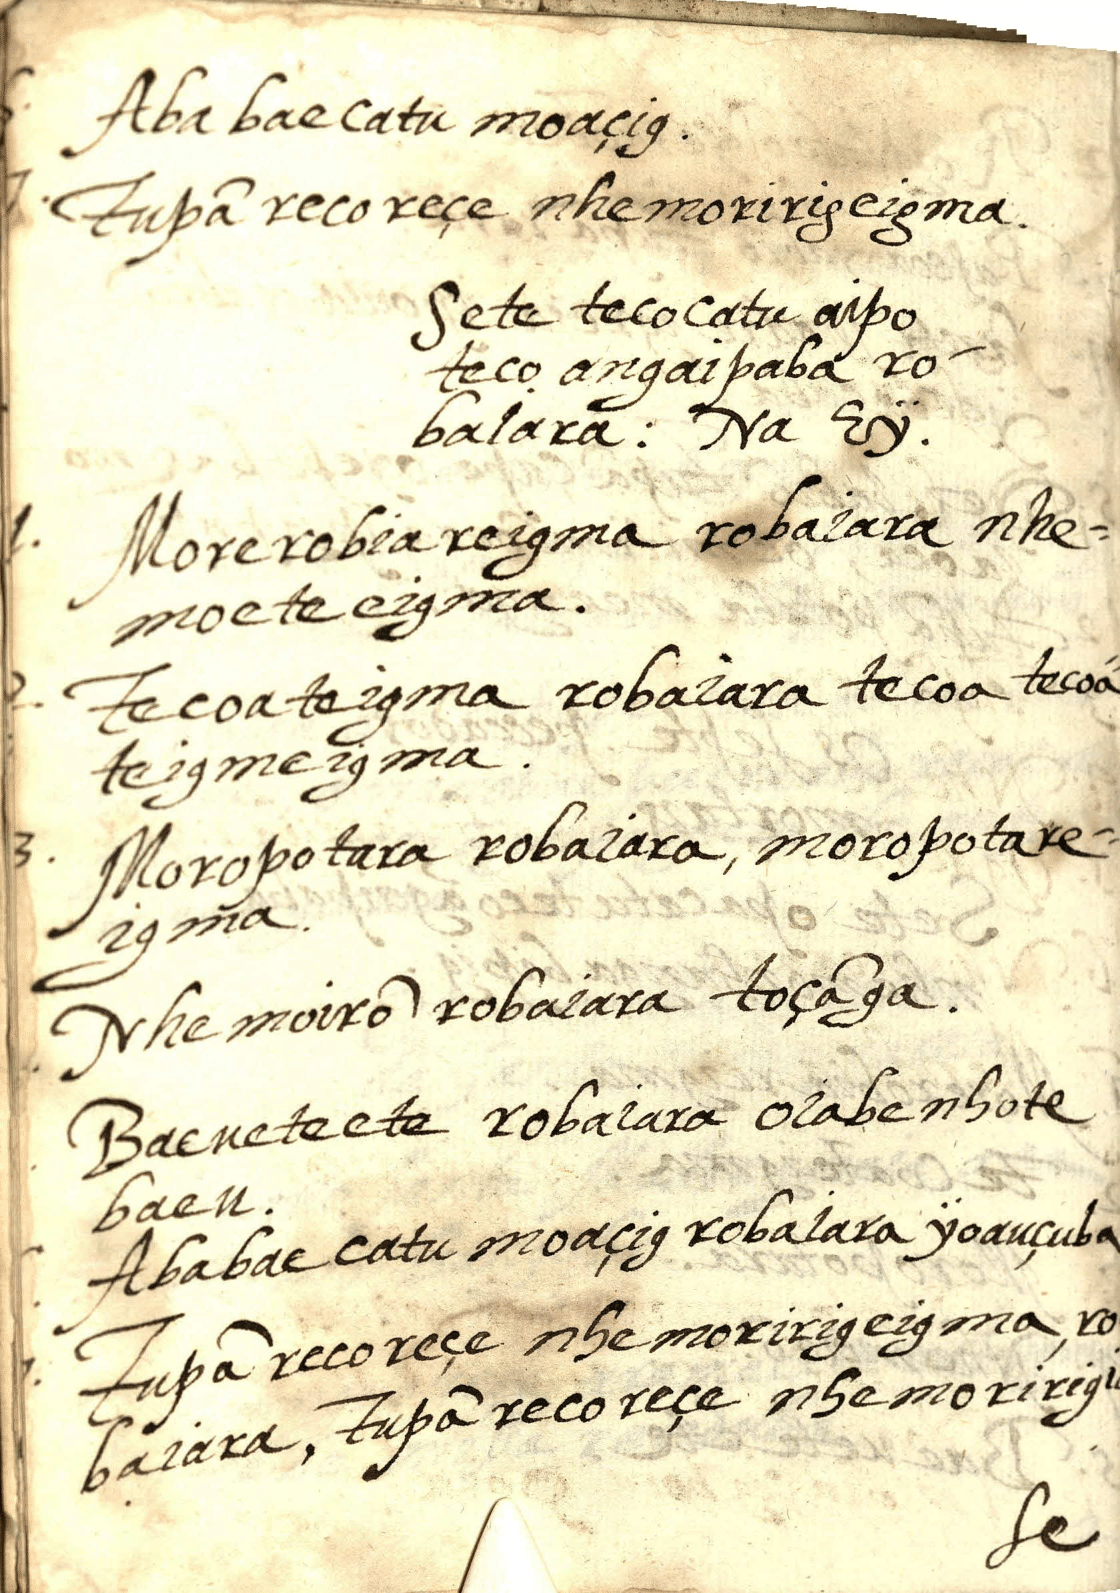 Aba bae catu moaçig.
7. Tupã recoreçe nhemoririgeigma.
Sete tecocatu aipo
teco angaipaba ro-
baiara: Na Eÿ.
1. Morerobiareigma robaiara nhe=
moeteeigma.
2. Tecoateigma robaiara tecoa tecoá
teigmeigma.
3. Moropotara robaiara, moropotare-
igma.
Nhemoirõ robaiara toçãga.
Baeueteete robaiara oiabenhote
baeu.
Ababae catu moaçig robaiara ÿoauçuba
Tupã recoreçe nhemoririgeigma, ro
baiara, Tupã recoreçe nhemoririgi
Se